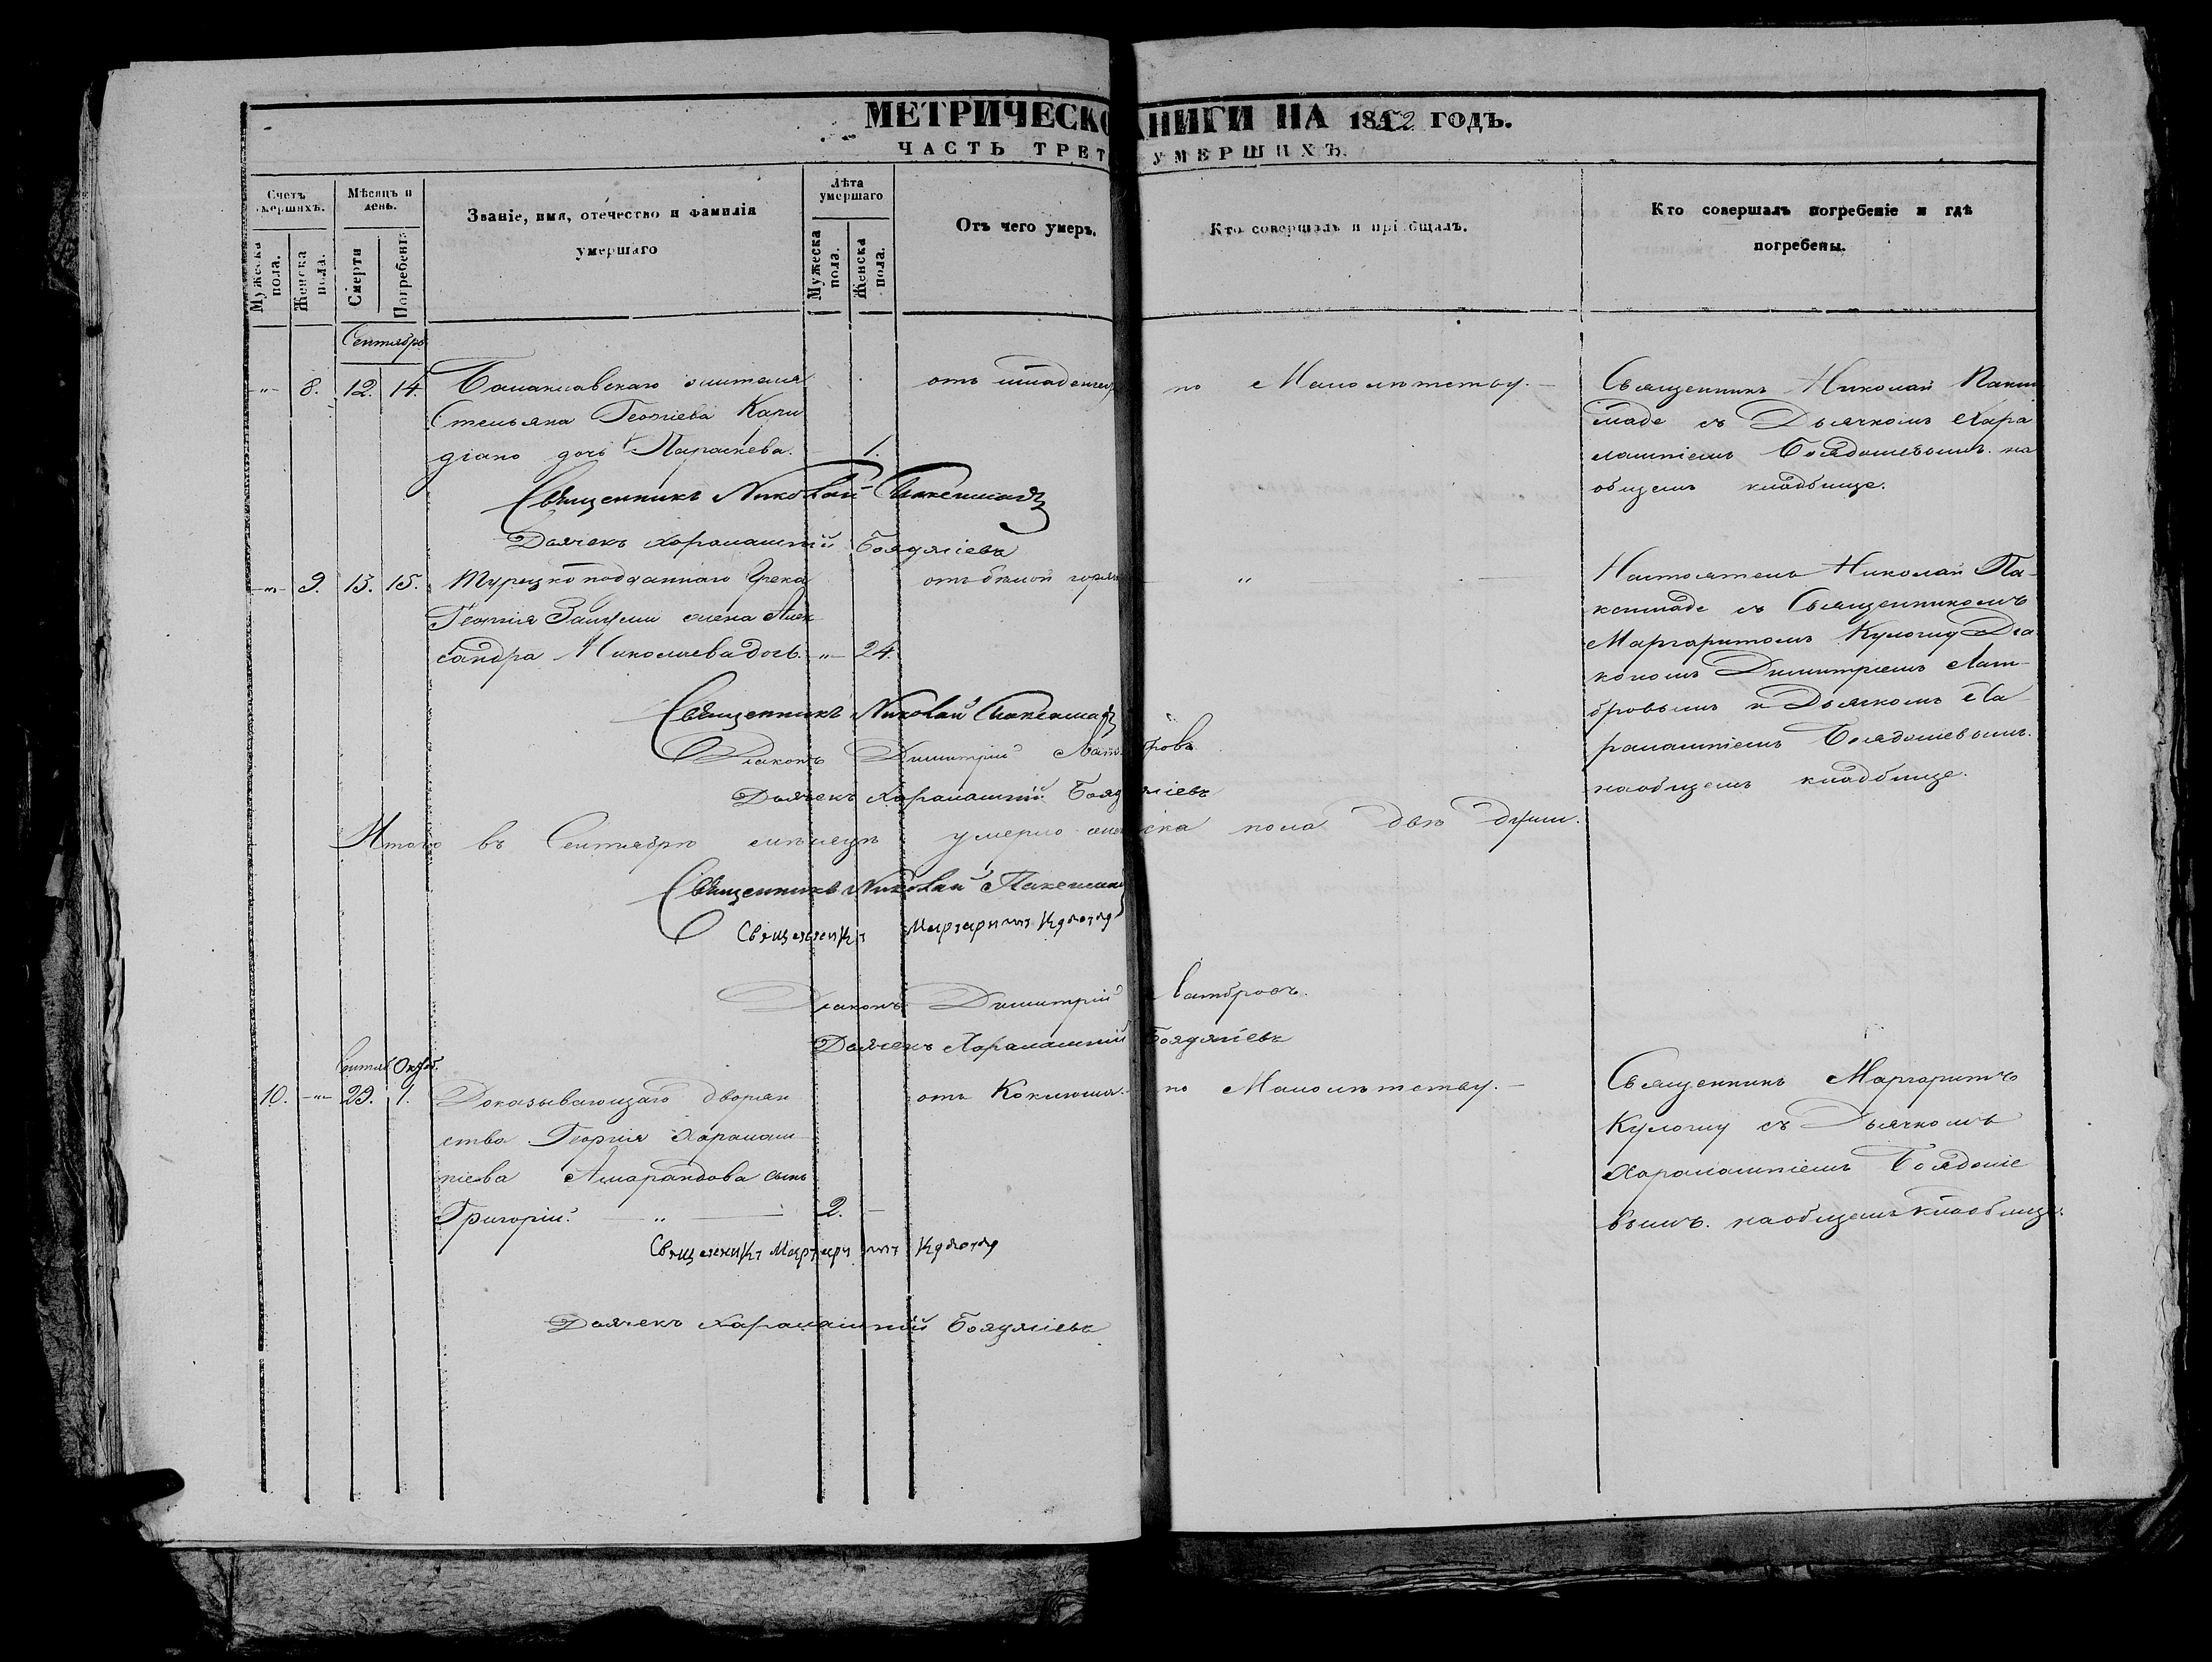 МЕТРИЧЕСКО КНИГИ НА 1852 ГОДЪ.
ЧАСТЬ ТРЕТ УМЕРШИХЪ.
Счетъ умершихъ.
Мужеска пола.
Женска пола.
Мѣсяцъ и день.
Смерти
Погребенія
Званіе, имя, отечество и фамилія
умершаго
Лѣта умершаго
Мужеска пола.
Женска пола.
Отъ чего умеръ.
Кто совершалъ и пріобщалъ.
Кто совершалъ погребеніе и гдѣ
погребены.
Сентябрь
-"- 8. 12. 14. Балаклавскаго жителя
Стельяна Георгіева Кали
діано дочь Параскева. 1.
отъ младенчес
по Малолѣтству.
Священникъ Николай Пакси
маде съ Дьячкомъ Хара
лампіемъ Бояджіевымъ на
общемъ кладбище.
Священникъ Николай
Дьячекъ Харалампій Бояджіевъ
-"- 9. 13. 15. Турецко подданнаго Грека
Георгія жена Алек
сандра Николаева дочь. -"- 24.
отъ бѣлой горяч
"
Настоятель Николай Па-
ксимаде съ Священникомъ
Маргаритомъ Кулогму Діа
кономъ Димитріемъ Лам-
бровымъ и Дьячкомъ Ха
ралампіемъ Бояджіевымъ.
на общемъ кладбище.
Священникъ Николай
Діаконъ Димитрій Ламбровъ
Дьячекъ Харалампій Бояджіевъ
Итого въ Сентябрѣ мѣсяцѣ умерло женска пола двѣ души.
Священникъ Николай
Священикъ Маргаритъ
Діаконъ Димитрій Ламбровъ.
Дьячекъ Харалампій Бояджіевъ
Сентяб Октяб.
10. -"- 29. 1. Доказывающаго дворян
ства Георгія Харалам
піева Амарандова сынъ
Григорій. - " - 2. -
отъ Коклюша.
по Малолѣтству. -
Священникъ Маргаритъ
Кулогму съ Дьячкомъ
Харалампіемъ Бояджіе
вымъ. на общемъ кладбище.
Священикъ Маргаритъ
Дьячекъ Харалампій Бояджіевъ